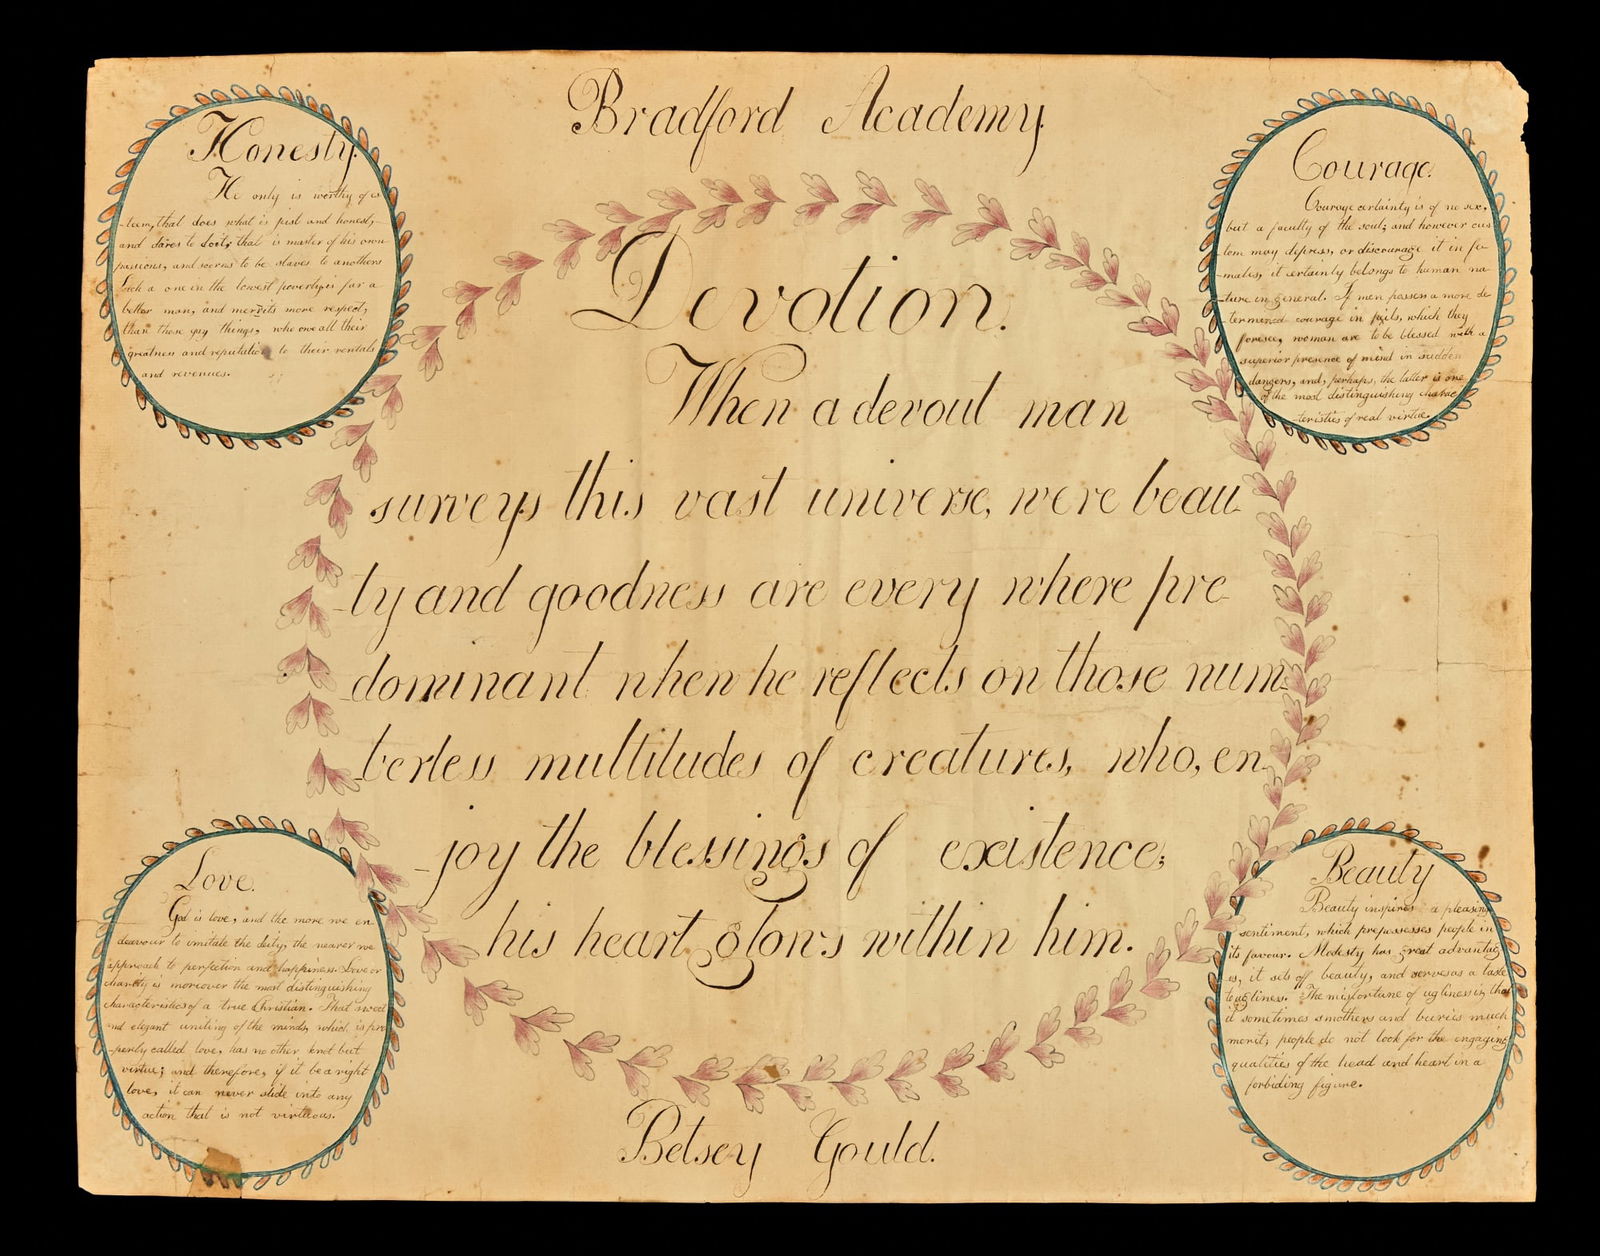 Bradford Academy.
Honesty.
He only is worthy of es
-teem, that does what is just and honest,
and dares to do it; that is master of his own
passions, and scorns to be slaves to anothers
Such a one in the lowest poverty is far a
better man, and merits more respect,
than those gay things, who owe all their
greatness and reputation to their rentals
and revenues.
Courage.
Courage certainty is of no sex,
but a faculty of the soul; and however cus
tom may depress, or discourage it in fe-
males, it certainly belongs to human na
-ture in general. If men possess a more de
termined courage in perils, which they
foresee, woman are to be blessed with a
superior presence of mind in sudden
dangers, and, perhaps, the latter is one
of the most distinguishing charac
-teristics of real virtue.
Devotion.
When a devout man
surveys this vast universe, were beau-
-ty and goodness are every where pre-
-dominant when he reflects on those num-
-berless multitudes of creatures, who, en-
-joy the blessings of existence;
his heart glows within him.
Love.
God is love, and the more we en
deavour to imitate the deity, the nearer we
approach to perfection and happiness. Love or
charity is moreover the most distinguishing
characteristics of a true Christian. That sweet
and elegant uniting of the minds, which is pro
-perly called love, has no other knot but
virtue; and therefore, if it be a right
love, it can never slide into any
action that is not virteous.
Beauty
Beauty inspires a pleasing
sentiment, which prepossesses people in
its favour. Modesty has great advantag
es, it sets off beauty, and serves as a
to ugliness. The misfortune of ugliness is, that
it sometimes smothers and buries much
merit, people do not look for the engaging
qualities of the head and heart in a
forbiding figure.
Betsey Gould.